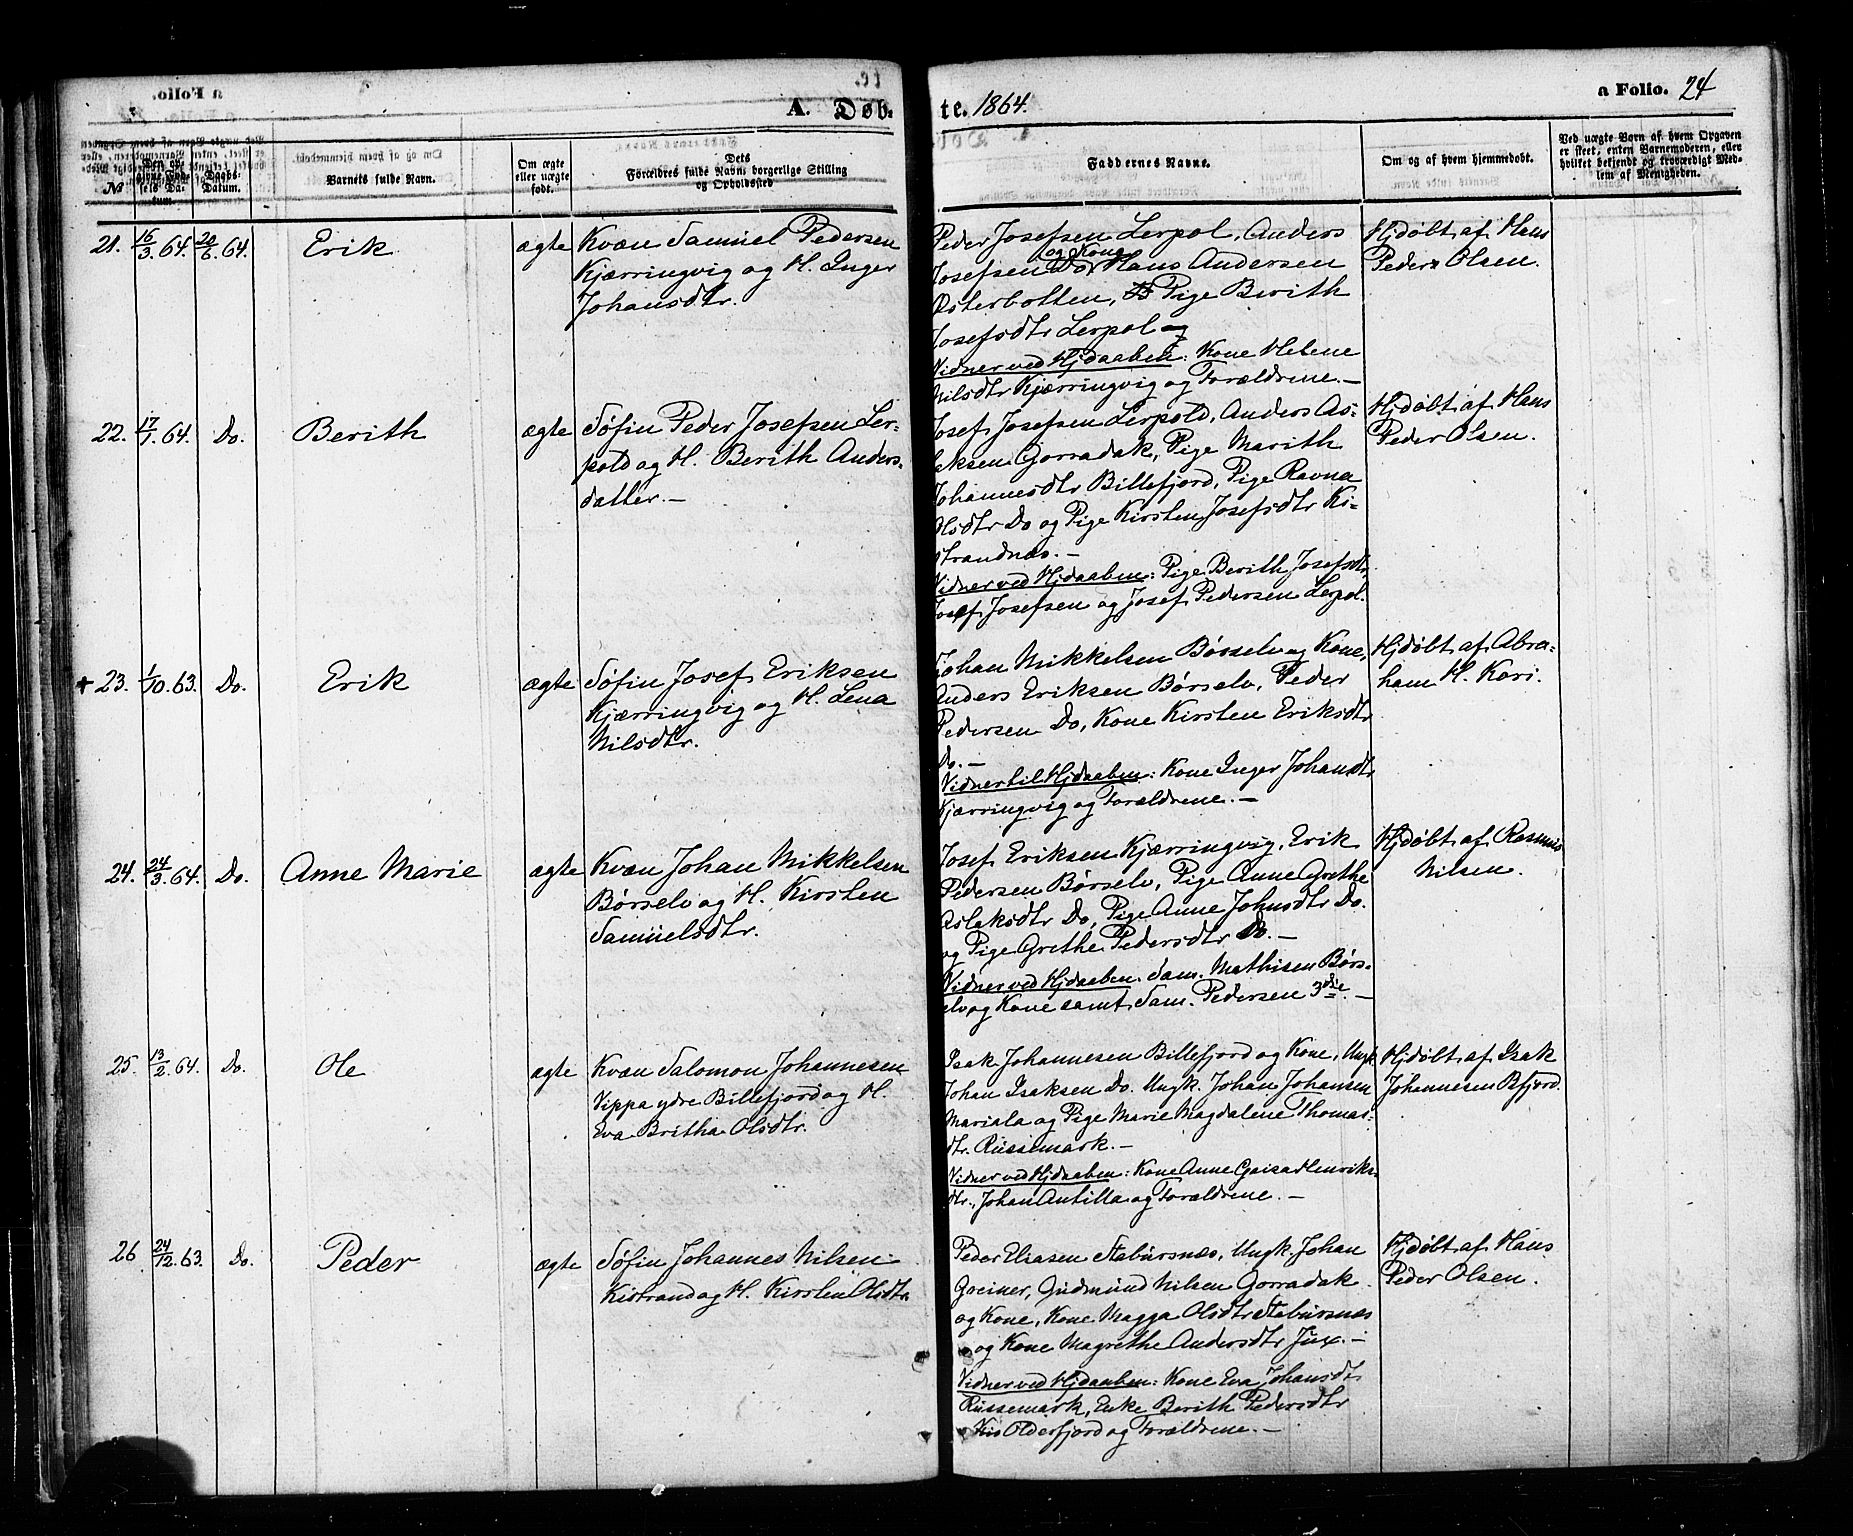 A. Døb. te. 1864.
a Folio. 24
№
Den opgivne Fødsels Datum.
Daabs-Datum.
Barnets fulde Navn.
Om ægte eller uægte født.
Dets Forældres fulde Navn borgerlige Stilling og Opholdssted
Faddernes Navne.
Om og af hvem hjemmedøbt.
Ved uægte Barn af hvem Opgaven er skeet, enten Barnemoderen, eller hvilket bekjendt og troværdigt Medlem af Menigheden.
21. 16/3 64. 20/6 64. Erik ægte
Kvæn Samüel Pedersen
Kjærringvig og H. Inger
Johansdtr.
Peder Josefsen Lerpol, Anders
og Kone
Josefsen Do, Hans Andersen
Østerbotten, Pige Berith
Josefsdtr Lerpol og
Vidner ved Hjdaaben: Kone Helene
Nilsdtr Kjærringvig og Forældrene. —
Hjdøbt af Hans
Peder Olsen.
22. 17/1 64. Do. Berith ægte
Søfin Peder Josefsen Ler-
pold og H. Berith Anders-
datter. —
Josef Josefsen Lerpold, Anders As-
leksen Gorradak, Pige Marith
Johannesdtr Billefjord, Pige Ravna
Olsdtr Do og Pige Kirsten Josefsdtr Ki-
strandnæs. —
Vidner ved Hjdaaben: Pige Berith Josefsdtr,
Josef Josefsen og Josef Pedersen Lerpol.
Hjdøbt af Hans
Peder Olsen.
+ 23. 1/10 63. Do. Erik ægte
Søfin Josef Eriksen
Kjærringvig og H. Lena
Nilsdtr.
Johan Mikkelsen Børselv og Kone,
Anders Eriksen Børselv, Peder
Pedersen Do, Kone Kirsten Eriksdtr
Do. —
Vidner til Hjdaaben: Kone Inger Johansdtr
Kjærringvig og Forældrene. —
Hjdøbt af Abra-
ham H. Kari.
24. 24/3 64. Do. Anne Marie ægte
Kvæn Johan Mikkelsen
Børselv og H. Kirsten
Samüelsdtr.
Josef Eriksen Kjærringvig, Erik
Pedersen Børselv, Pige Anne Grethe
Aslaksdtr Do, Pige Anne Johnsdtr Do.
og Pige Grethe Pedersdtr Do. —
Vidner ved Hjdaaben. Sam. Mathisen Børs-
elv og Kone samt Sam. Pedersen 3die. —
Hjdøbt af Rasmus
Nilsen.
25. 13/2 64. Do. Ole ægte
Kvæn Salomon Johannesen
Vippa ydre Billefjord og H.
Eva Britha Olsdtr.
Isak Johannesen Billefjord og Kone, Ungk.
Johan Isaksen Do. Ungk. Johan Johansen
Mariala og Pige Marie Magdalene Thomas-
dtr. Rüssemark. —
Vidner ved Hjdaaben: Kone Anne Gaisa Henriks-
dtr., Johan Antilla og Forældrene. —
Hjdøbt af Isak
Johannesen Bfjord.
26 24/12 63. Do. Peder ægte
Søfin Johannes Nilsen
Kistrand og H. Kirsten Olsdtr.
Peder Eliasen Stabürsnæs, Ungk. Johan
Greiner, Güdmünd Nilsen Gorradak
og Kone, Kone Magga Olsdtr Stabürsnæs
og Kone Magrethe Andersdtr Jüx. —
Vidner ved Hjdaaben: Kone Eva Johansdtr
Rüssemark, Enke Berith Pedersdtr
Olderfjord og Forældrene. —
Hjdøbt af Hans
Peder Olsen.